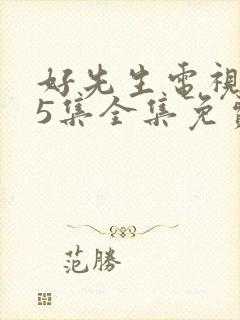 好先生電視
5集全集免費
范勝